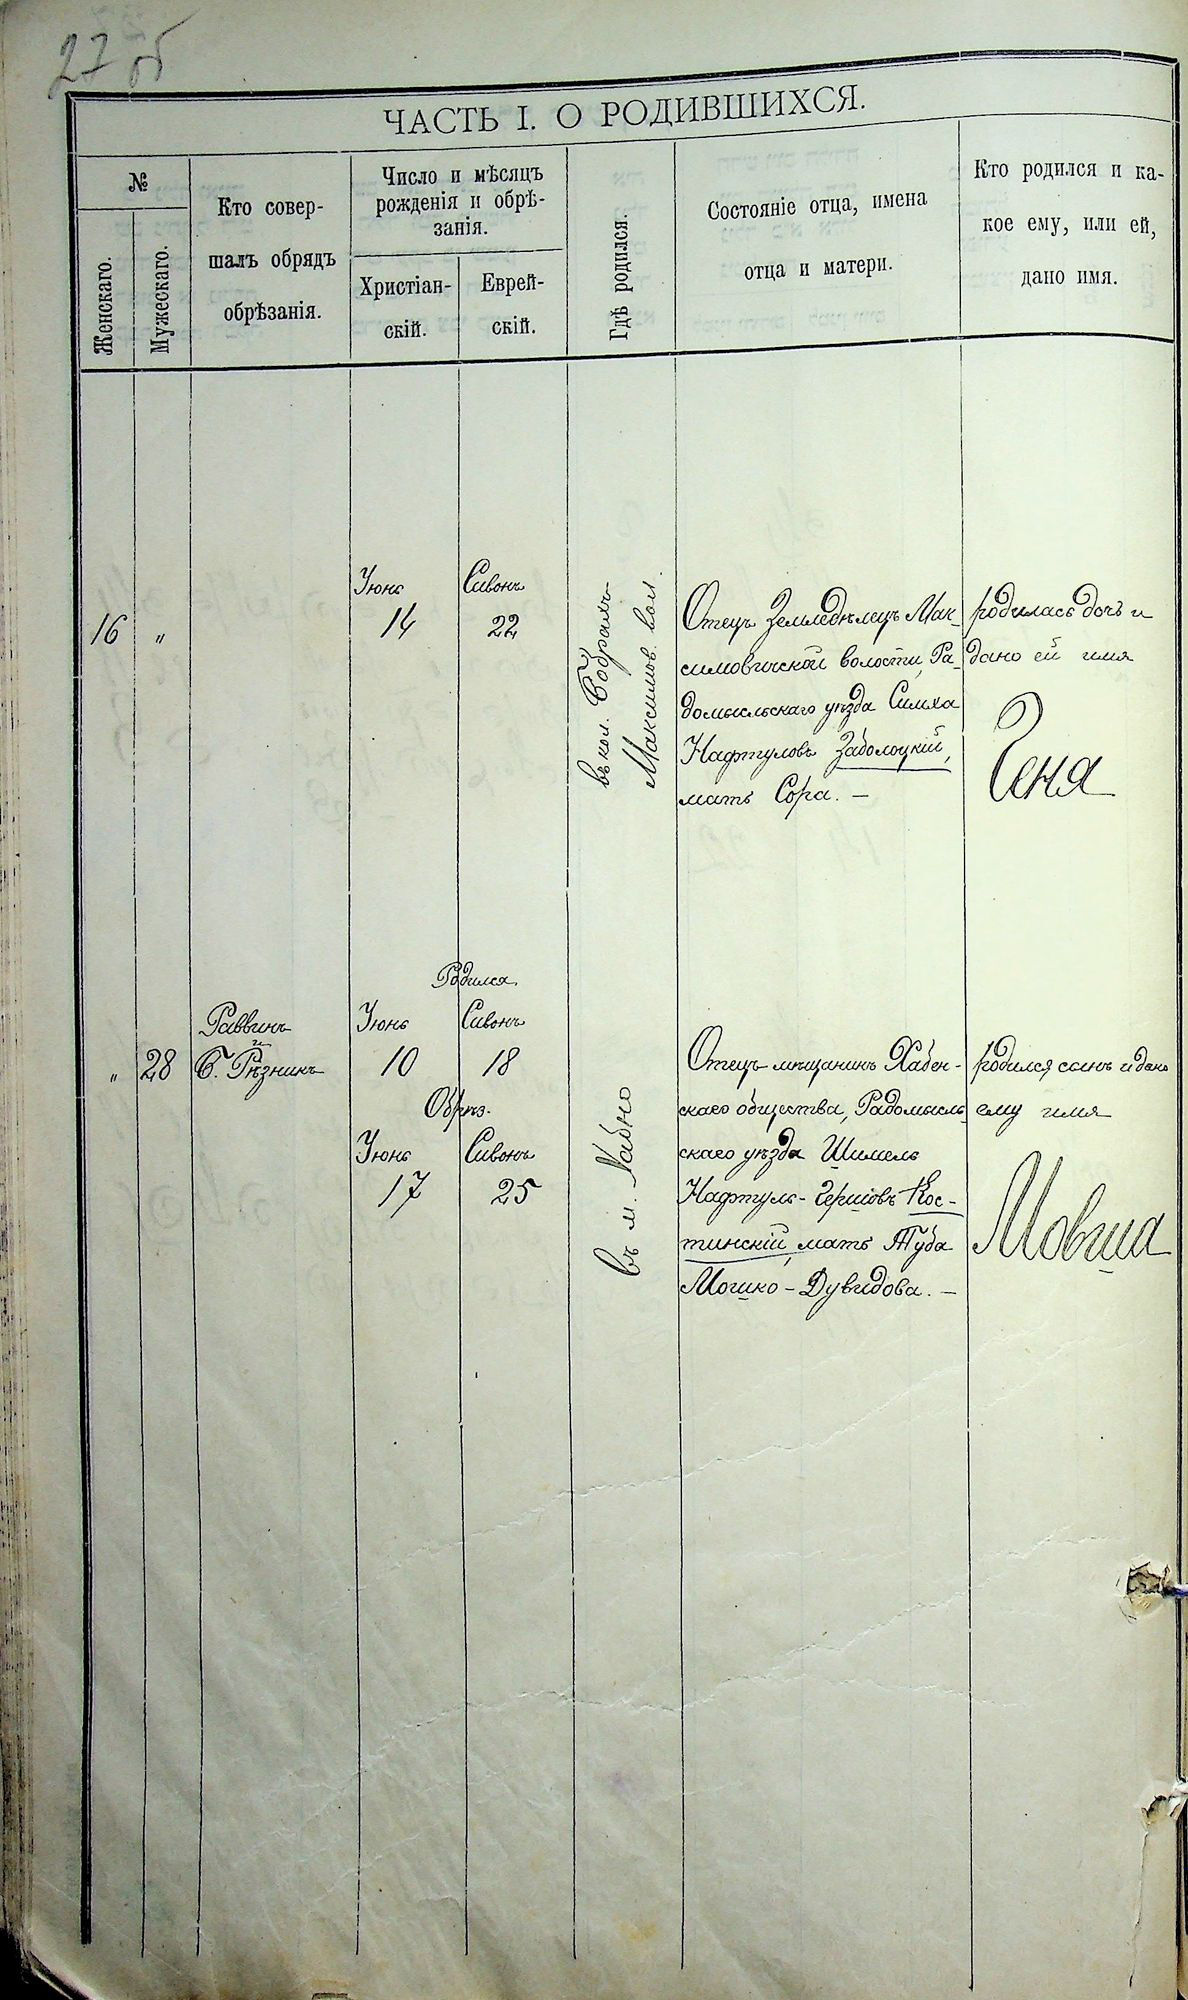 27 об
ЧАСТЬ I. О РОДИВШИХСЯ.
№
Женскаго.
Мужескаго.
Кто совер-
шалъ обрядъ
обрѣзанія.
Число и мѣсяцъ
рожденія и обрѣ-
занія.
Христіан-
скій.
Еврей-
скій.
Гдѣ родился.
Состояніе отца, имена
отца и матери.
Кто родился и ка-
кое ему, или ей,
дано имя.
16
"
Іюнь
14
Сивонъ
22
въ кол.
Максимов. вол.
Отецъ Земледѣлецъ Мак-
симовичской волости, Ра-
домысльскаго уѣзда Симха
Нафтуловъ Заболоцкій,
мать Сора. —
родилась дочь и
дано ей имя
Геня
"
28
Раввинъ
и
Б. Рѣзникъ
Родился
Іюнь
10
Сивонъ
18
Обрѣз.
Іюнь
17
Сивонъ
25
въ м. Хабно
Отецъ мѣщанинъ Хабен-
скаго общества, Радомысль-
скаго уѣзда Шимель
Нафтуль-Гершовъ Кос-
тинскій, мать Туба
Мошко-Дувидова. —
родился сынъ и дано
ему имя
Мовша